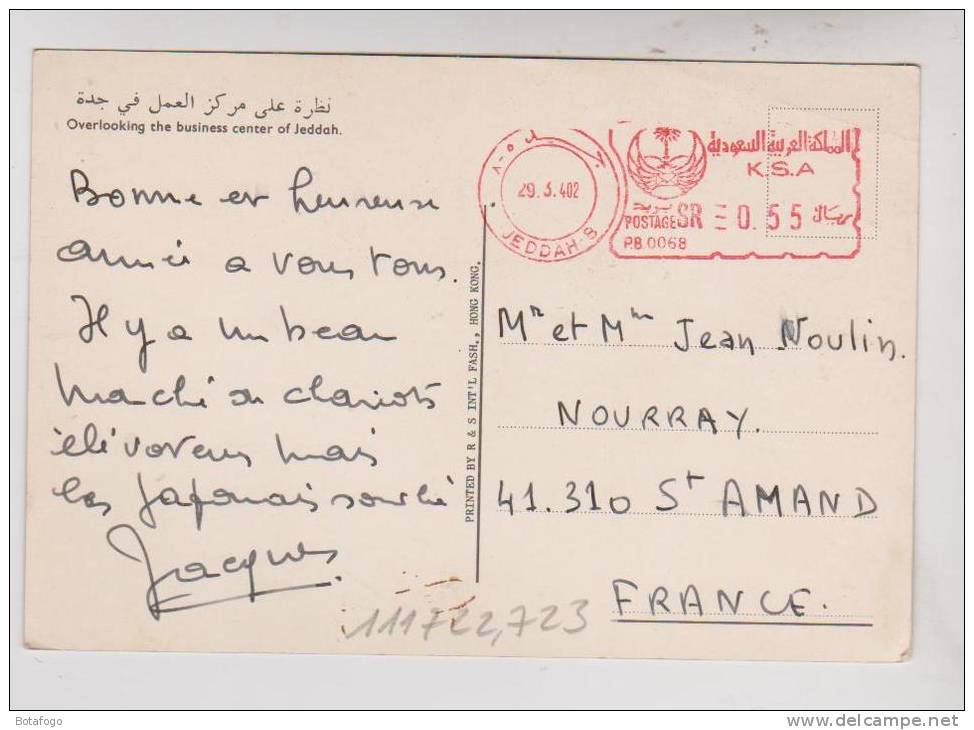 نظرة على مركز العمل في جدة
Overlooking the business center of Jeddah.
Bonne et heureuse
année a vous tous.
Il y a un beau
marché de chariots
élévateurs mais
les Japonais sont là
Jacques
PRINTED BY R & S INT'L FASH., HONG KONG.
29.3.402
JEDDAH-8
المملكة العربية السعودية
K.S.A
POSTAGE SR 0.55 ريال
P.B.0068
Mr et Mm Jean Noulin.
NOURRAY.
41.310 St AMAND
FRANCE.
111722,723
Botafogo
www.delcampe.net